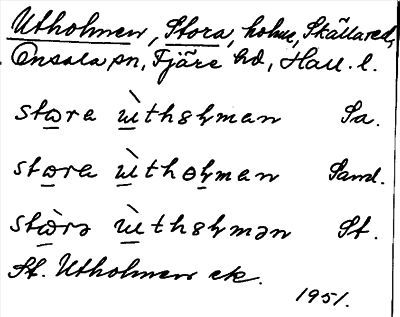 Utholmen, Stora, holme, Skällared,
Onsala sn, Fjäre hd, Hall. l.
stωra ùthȣɥman Sa.
stωra ùthoɥman Sand.
stὼrə ùthȣɥmən St.
St. Utholmen ek.
1951.